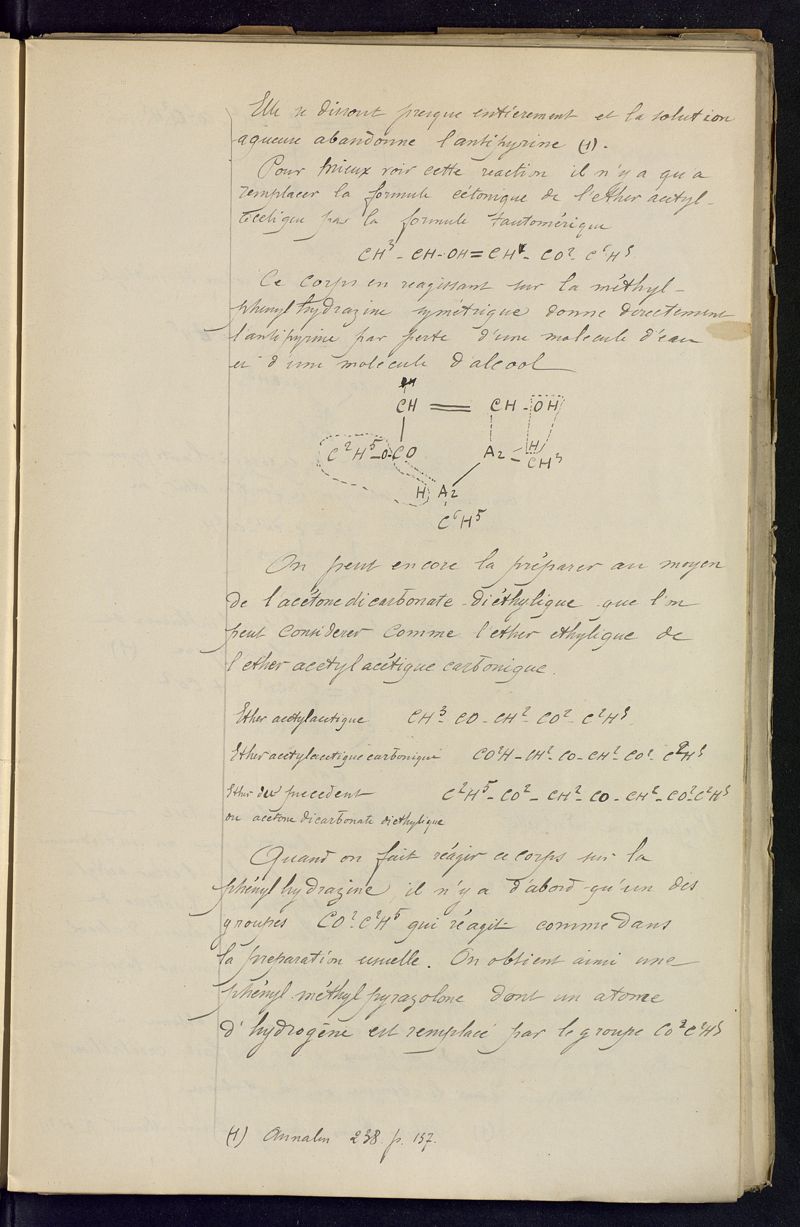 Elle se dissout presque entièrement et la solution
aqueuse abandonne l'antipyrine (1).
Pour mieux voir cette reaction il n'y a qu'a
remplacer la formule cétonique de l'ether acétyl-
acetique par la formule tautomérique
CH³ - CH-OH = CH - CO² - C⁶H⁵
Ce corps en reagissant sur la méthyl-
phenyl hydrazine symétrique donne directement
l'antipyrine par perte d'une molecule d'eau
et d'une molecule d'alcool
CH = CH - OH
C²H⁵-O-CO Az - H
CH³
H Az
C⁶H⁵
On peut encore la préparer au moyen
de l'acétone dicarbonate-diéthylique que l'on
peut considerer comme l'ether ethylique de
l'ether acetylacétique carbonique.
Ether acetylacetique CH³ - CO - CH² - CO² - C²H⁵
Ether acetylacetique carbonique CO²H - CH² - CO - CH² - CO² - C²H⁵
Ether du precedent C²H⁵ - CO² - CH² - CO - CH² - CO² - C²H⁵
ou acetone dicarbonate diethylique
Quand on fait réagir ce corps sur la
phényl hydrazine, il n'y a d'abord qu'un des
groupes CO²-C²H⁵ qui réagit comme dans
la preparation usuelle. On obtient ainsi une
phényl méthyl pyrazolone dont un atome
d'hydrogène est remplacé par le groupe CO²C²H⁵
(1) Annalen 238 p. 157.